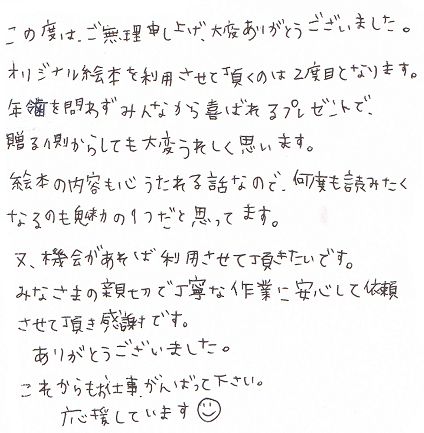 この度は、ご無理申し上げ、大変ありがとうございました。
オリジナル絵本を利用させて頂くのは2度目となります。
年齢を問わずみんなから喜ばれるプレゼントで、
贈る側からしても大変うれしく思います。
絵本の内容も心うたれる話なので、何度も読みたく
なるのも魅力の1つだと思ってます。
又、機会があれば利用させて頂きたいです。
みなさまの親切で丁寧な作業に安心して依頼
させて頂き感謝です。
ありがとうございました。
これからもお仕事、がんばって下さい。
応援しています